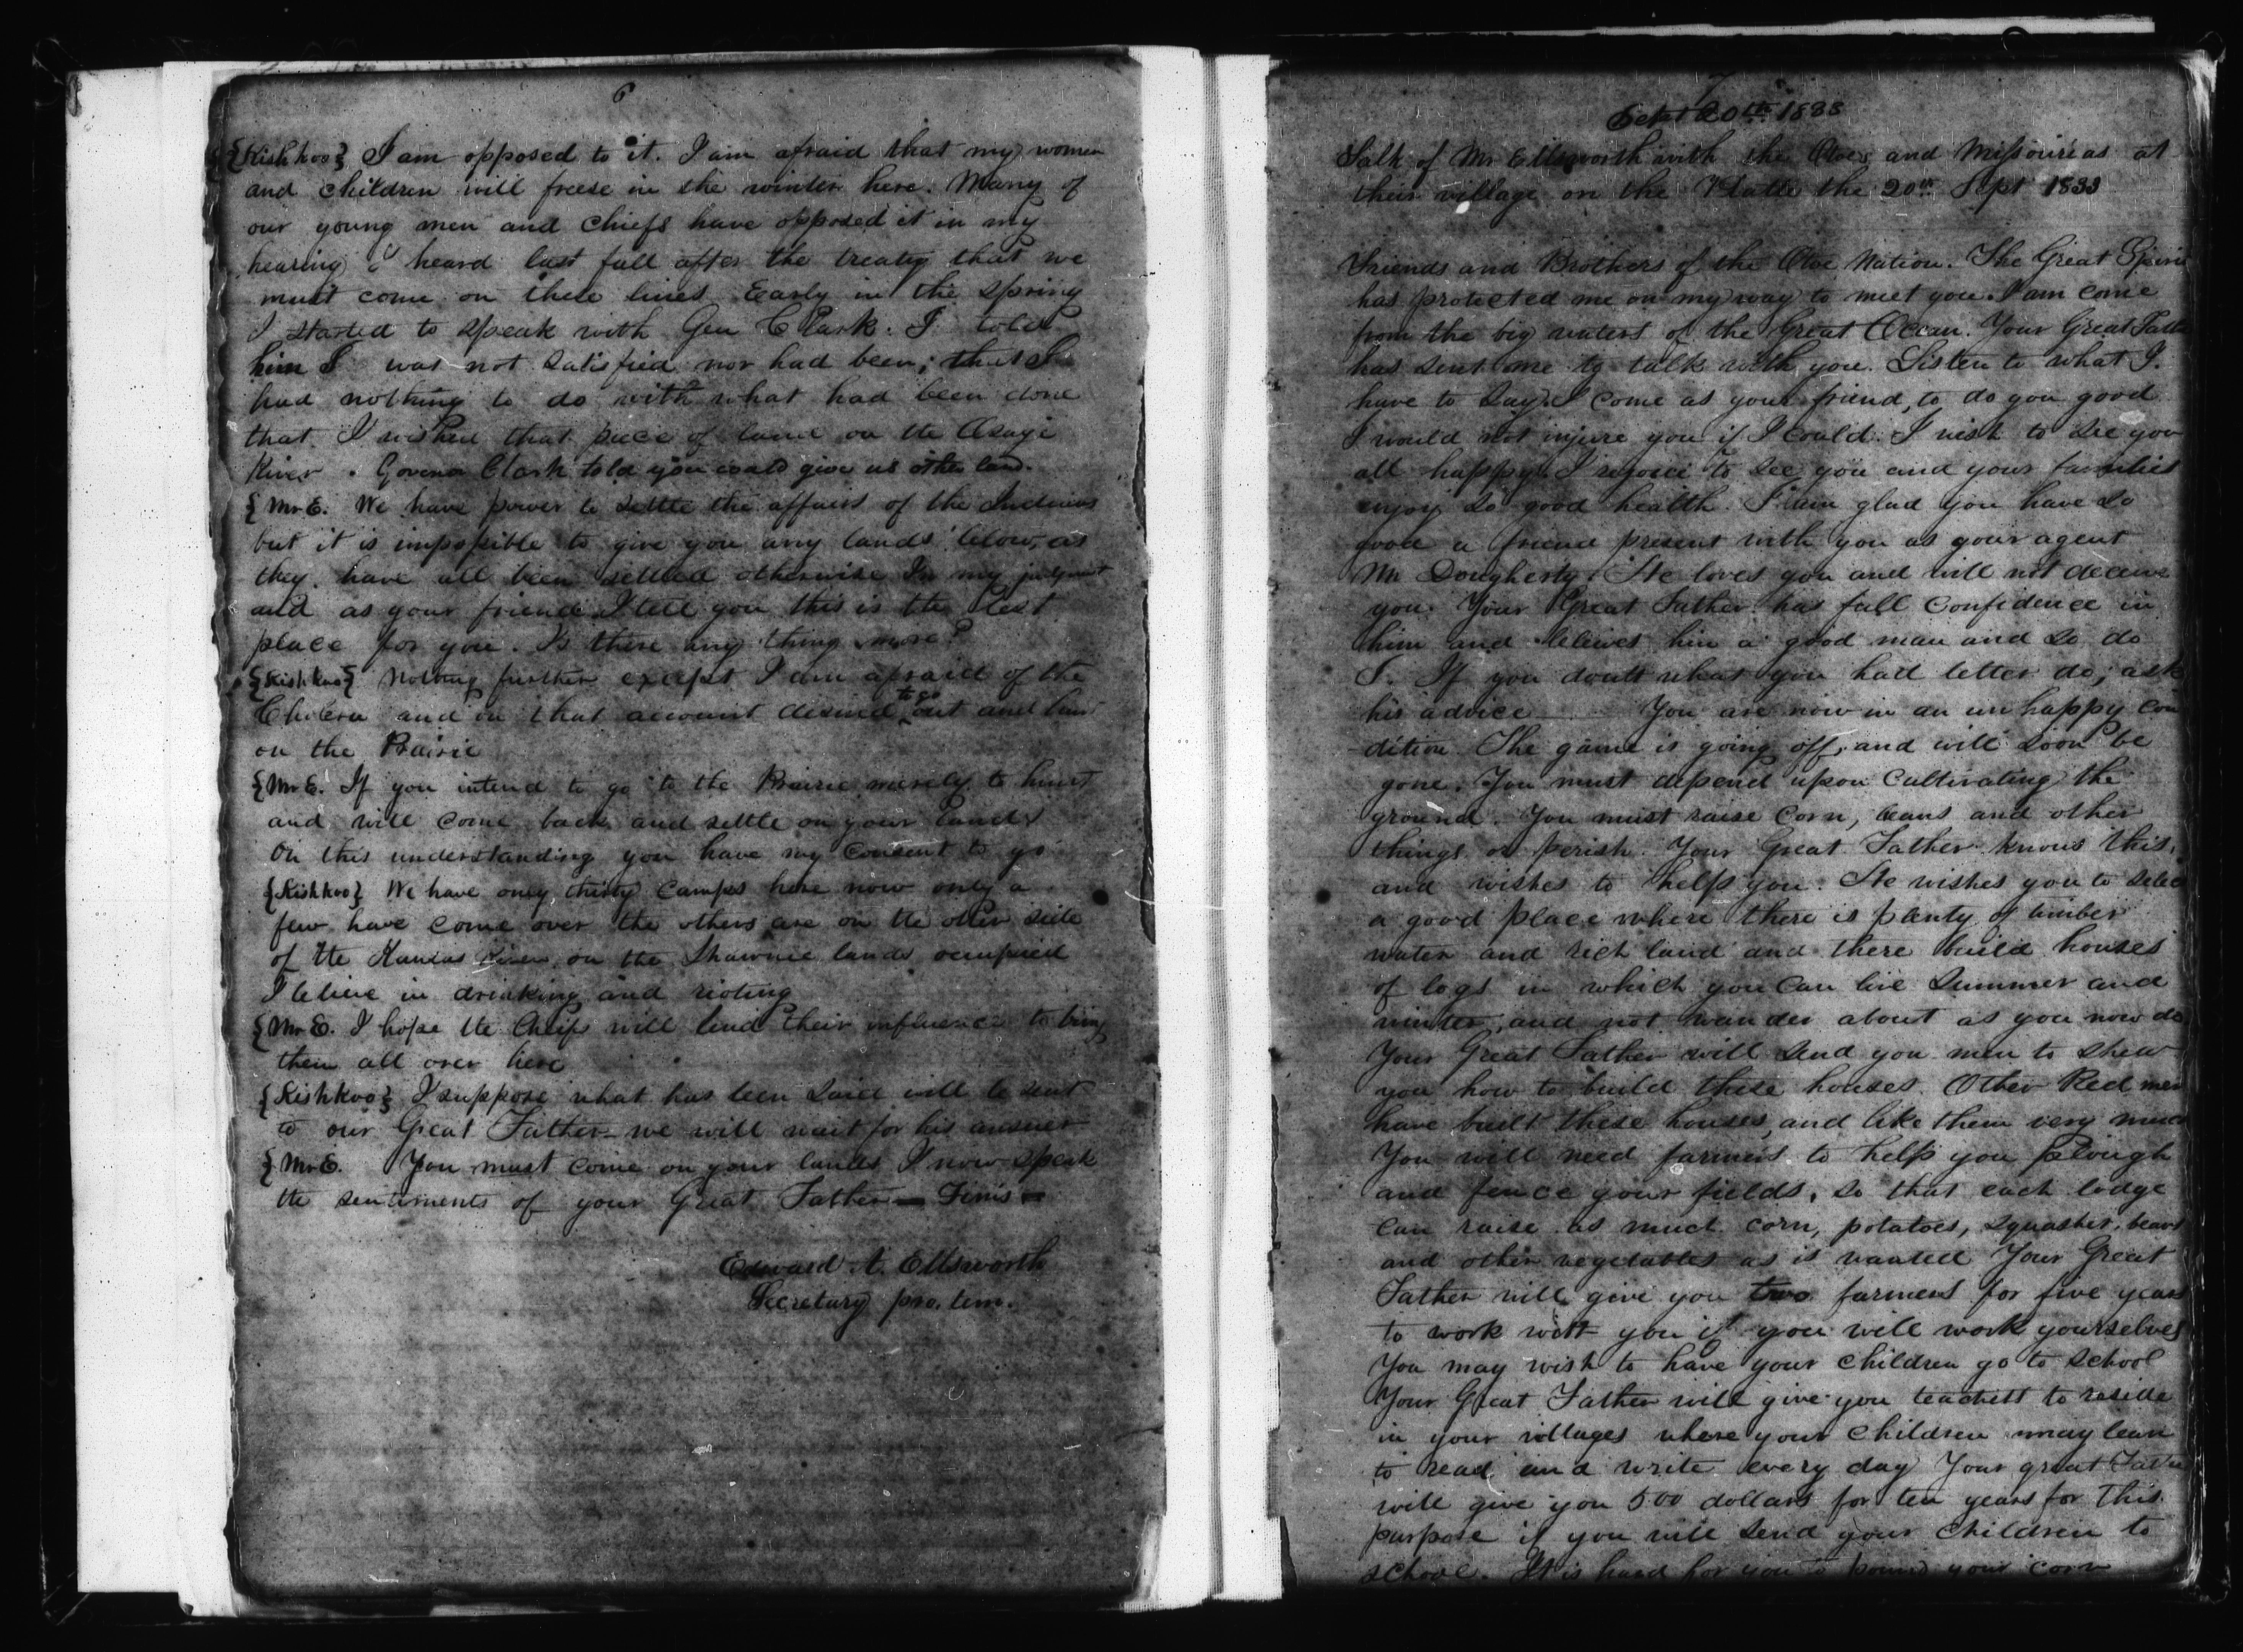 6
{Kishkoo} I am opposed to it. I am afraid that my women
and children will freese in the winter here. Many of
our young men and chiefs have opposed it in my
hearing I heard last fall after the treaty that we
must come on these lines Early in the spring
I started to speak with Gen Clark. I told
him I was not satisfied nor had been; that I
had nothing to do with what had been done
that I wished that piece of land on the Osage
River. Govenor Clark told you could give us other land.
{Mr E. We have power to settle the affairs of the Indians
but it is impossible to give you any lands below, as
they have all been settled otherwise In my judgment
and as your friend I tell you this is the best
place for you. Is there any thing more?
{Kishkoo} Nothing further except I am afraid of the
Cholera and on that account desired to go out and hunt
on the Prairie
{Mr E. If you intend to go to the Prairie merely to hunt
and will come back and settle on your lands
On this understanding you have my consent to go
{Kishkoo} We have only thirty camps here now only a
few have come over the others are on the other side
of the Kansas River, on the Shawnee lands occupied
I believe in drinking and rioting
{Mr E. I hope the Chiefs will lend their influence to bring
them all over here
{Kishkoo} I suppose what has been said will be sent
to our Great Father we will wait for his answer
{Mr E. You must come on your lands I now speak
the sentiments of your Great Father — Finis —
Edward A. Ellsworth
Secretary pro. tem.
7
Sept 20th 1833
Talk of Mr Ellsworth with the Otoes and Missourias at
their village on the Platte the 20th Sept 1833
Friends and Brothers of the Otoe Nation. The Great Spirit
has protected me on my way to meet you. I am come
from the big waters of the Great Ocean. Your Great Father
has sent me to talk with you. Listen to what I
have to say. I come as your friend, to do you good
I would not injure you if I could. I wish to see you
all happy. I rejoice to see you and your families
enjoy so good health. I am glad you have so
good a friend present with you as your agent
Mr Dougherty. He loves you and will not deceive
you. Your Great Father has full confidence in
him and believes him a good man and so do
I. If you doubt what you had better do; ask
his advice — You are now in an unhappy con
dition. The game is going off, and will soon be
gone. You must depend upon cultivating the
ground. You must raise corn, beans and other
things or perish. Your Great Father knows this,
and wishes to help you. He wishes you to select
a good place where there is plenty of timber
water and rich land and there build houses
of logs in which you can live summer and
winter, and not wander about as you now do
Your Great Father will send you men to shew
you how to build these houses. Other Red men
have built these houses, and like them very much
You will need farmers to help you plough
and fence your fields, so that each lodge
can raise as much corn, potatoes, squashes, beans
and other vegetables as is wanted Your Great
Father will give you two farmers for five years
to work with you if you will work yourselves
You may wish to have your children go to school
Your Great Father will give you teachers to reside
in your villages where your children may learn
to read and write every day Your great Father
will give you 500 dollars for ten years for this
purpose if you will send your children to
school. It is hard for you to pound your corn